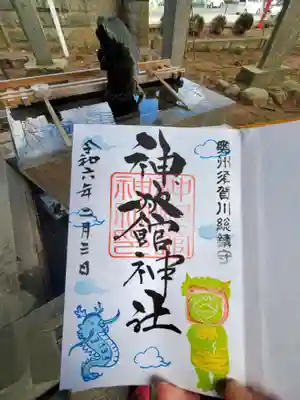 奥州須賀川総鎮守
神炊館神社
令和六年二月三日